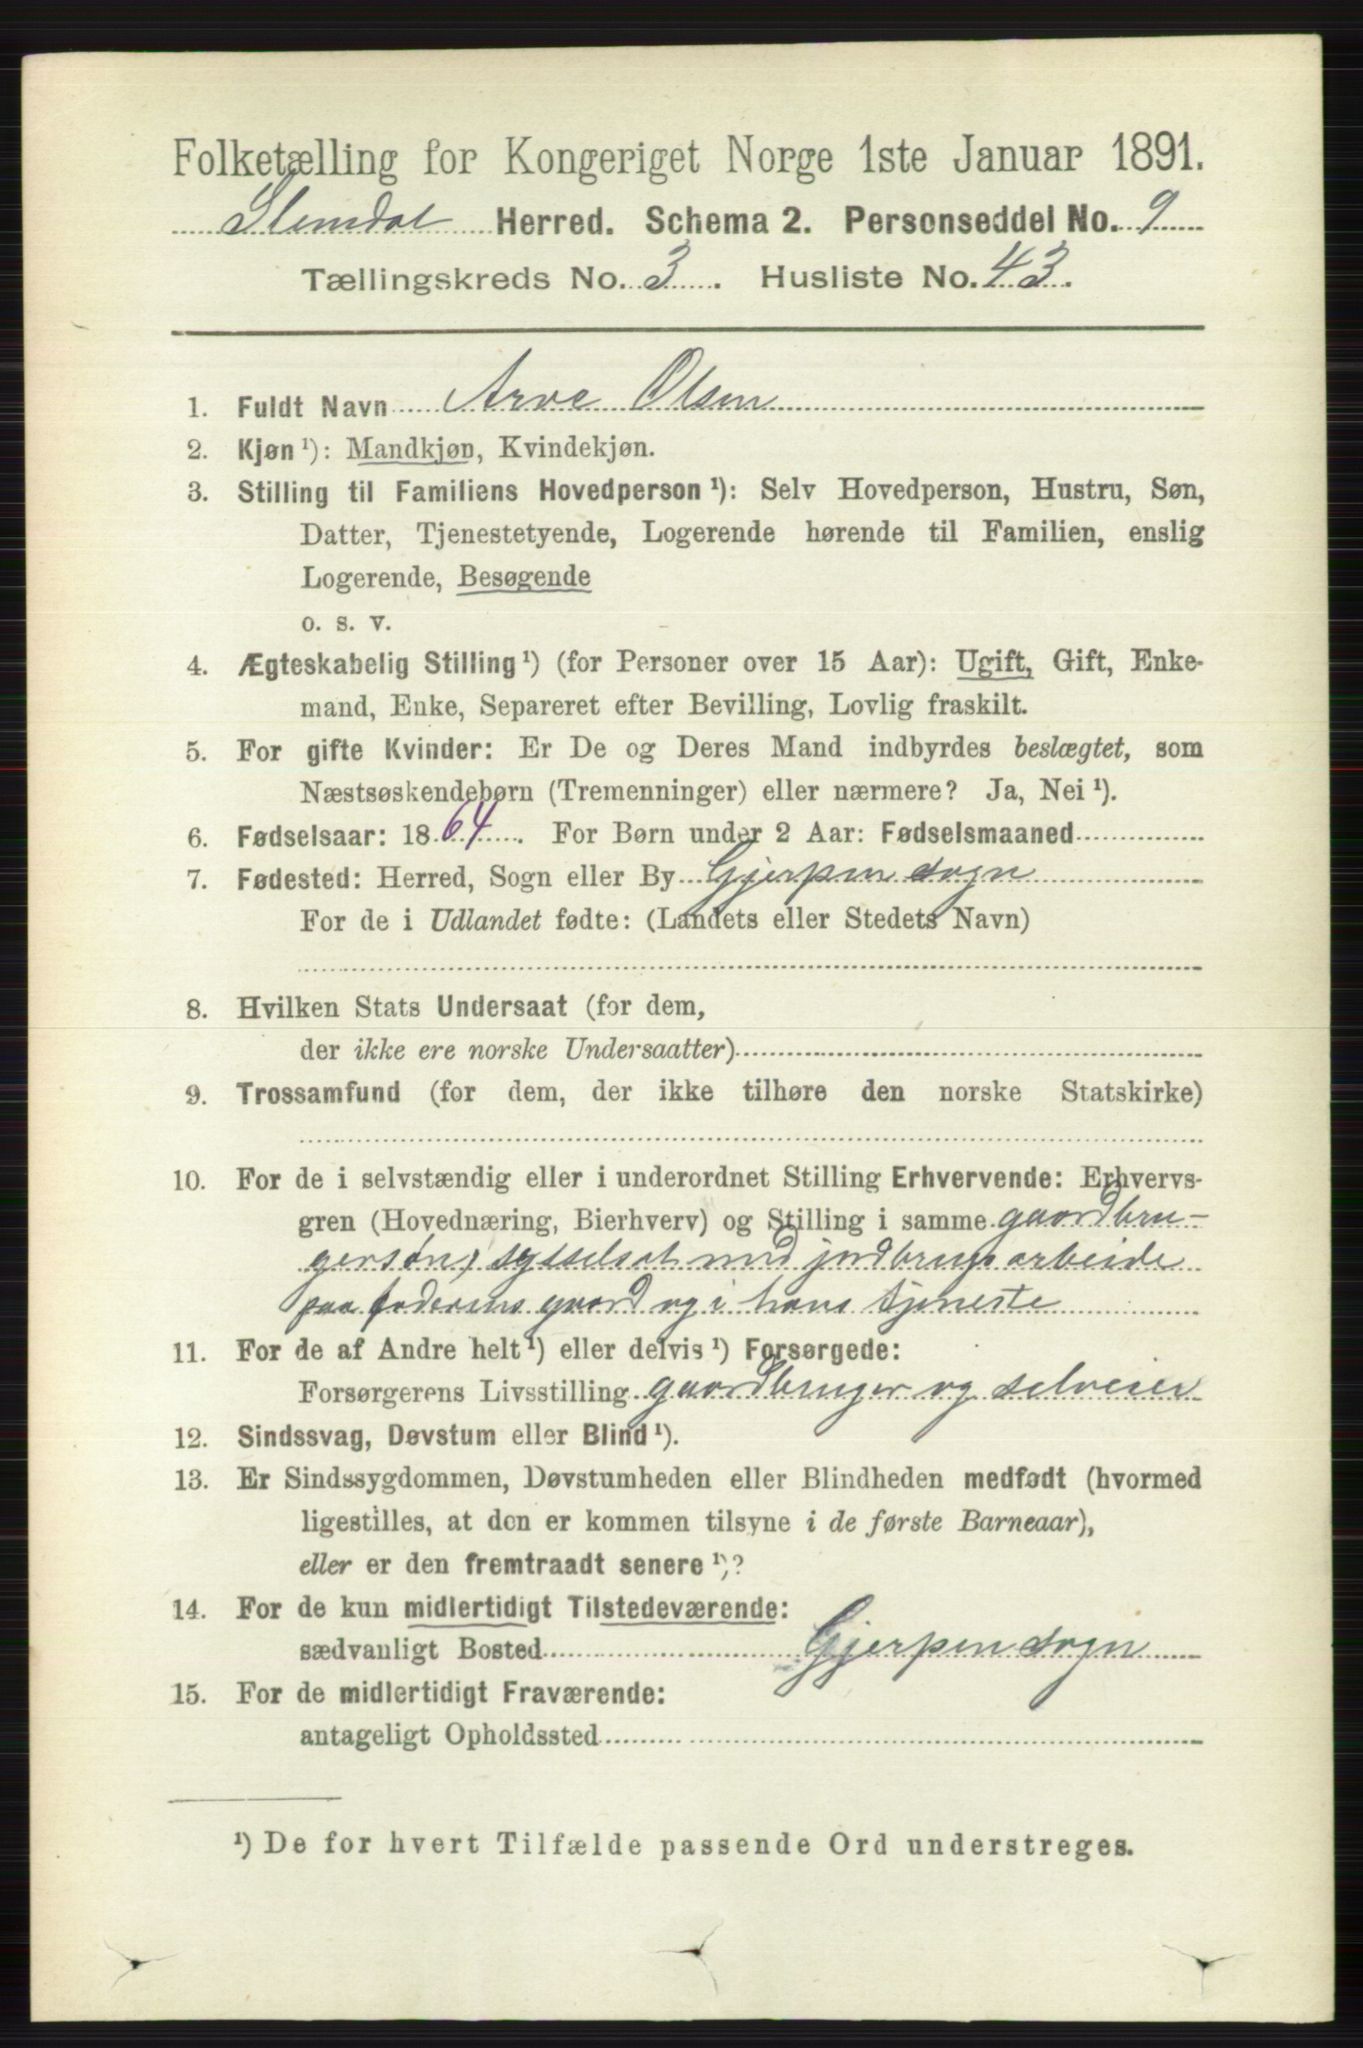 Folketælling for Kongeriget Norge 1ste Januar 1891.
Slemdal Herred. Schema 2. Personseddel No. 9
Tællingskreds No. 3. Husliste No. 43.
1. Fuldt Navn Arve Olsen
2. Kjøn ¹): Mandkjøn, Kvindekjøn.
3. Stilling til Familiens Hovedperson ¹): Selv Hovedperson, Hustru, Søn,
Datter, Tjenestetyende, Logerende hørende til Familien, enslig
Logerende, Besøgende
o. s. v.
4. Ægteskabelig Stilling ¹) (for Personer over 15 Aar): Ugift, Gift, Enke-
mand, Enke, Separeret efter Bevilling, Lovlig fraskilt.
5. For gifte Kvinder: Er De og Deres Mand indbyrdes beslægtet, som
Næstsøskendebørn (Tremenninger) eller nærmere? Ja, Nei ¹).
6. Fødselsaar: 1864. For Børn under 2 Aar: Fødselsmaaned
7. Fødested: Herred, Sogn eller By Gjerpen sogn
For de i Udlandet fødte: (Landets eller Stedets Navn)
8. Hvilken Stats Undersaat (for dem,
der ikke ere norske Undersaatter)
9. Trossamfund (for dem, der ikke tilhøre den norske Statskirke)
10. For de i selvstændig eller i underordnet Stilling Erhvervende: Erhvervs-
gren (Hovednæring, Bierhverv) og Stilling i samme gaardbru-
gersøn, sysselsat med jordbrugsarbeide
paa faderens gaard og i hans tjeneste
11. For de af Andre helt ¹) eller delvis ¹) Forsørgede:
Forsørgerens Livsstilling gaardbruger og selveier
12. Sindssvag, Døvstum eller Blind ¹).
13. Er Sindssygdommen, Døvstumheden eller Blindheden medfødt (hvormed
ligestilles, at den er kommen tilsyne i de første Barneaar),
eller er den fremtraadt senere ¹)?
14. For de kun midlertidigt Tilstedeværende:
sædvanligt Bosted Gjerpen sogn
15. For de midlertidigt Fraværende:
antageligt Opholdssted
¹) De for hvert Tilfælde passende Ord understreges.